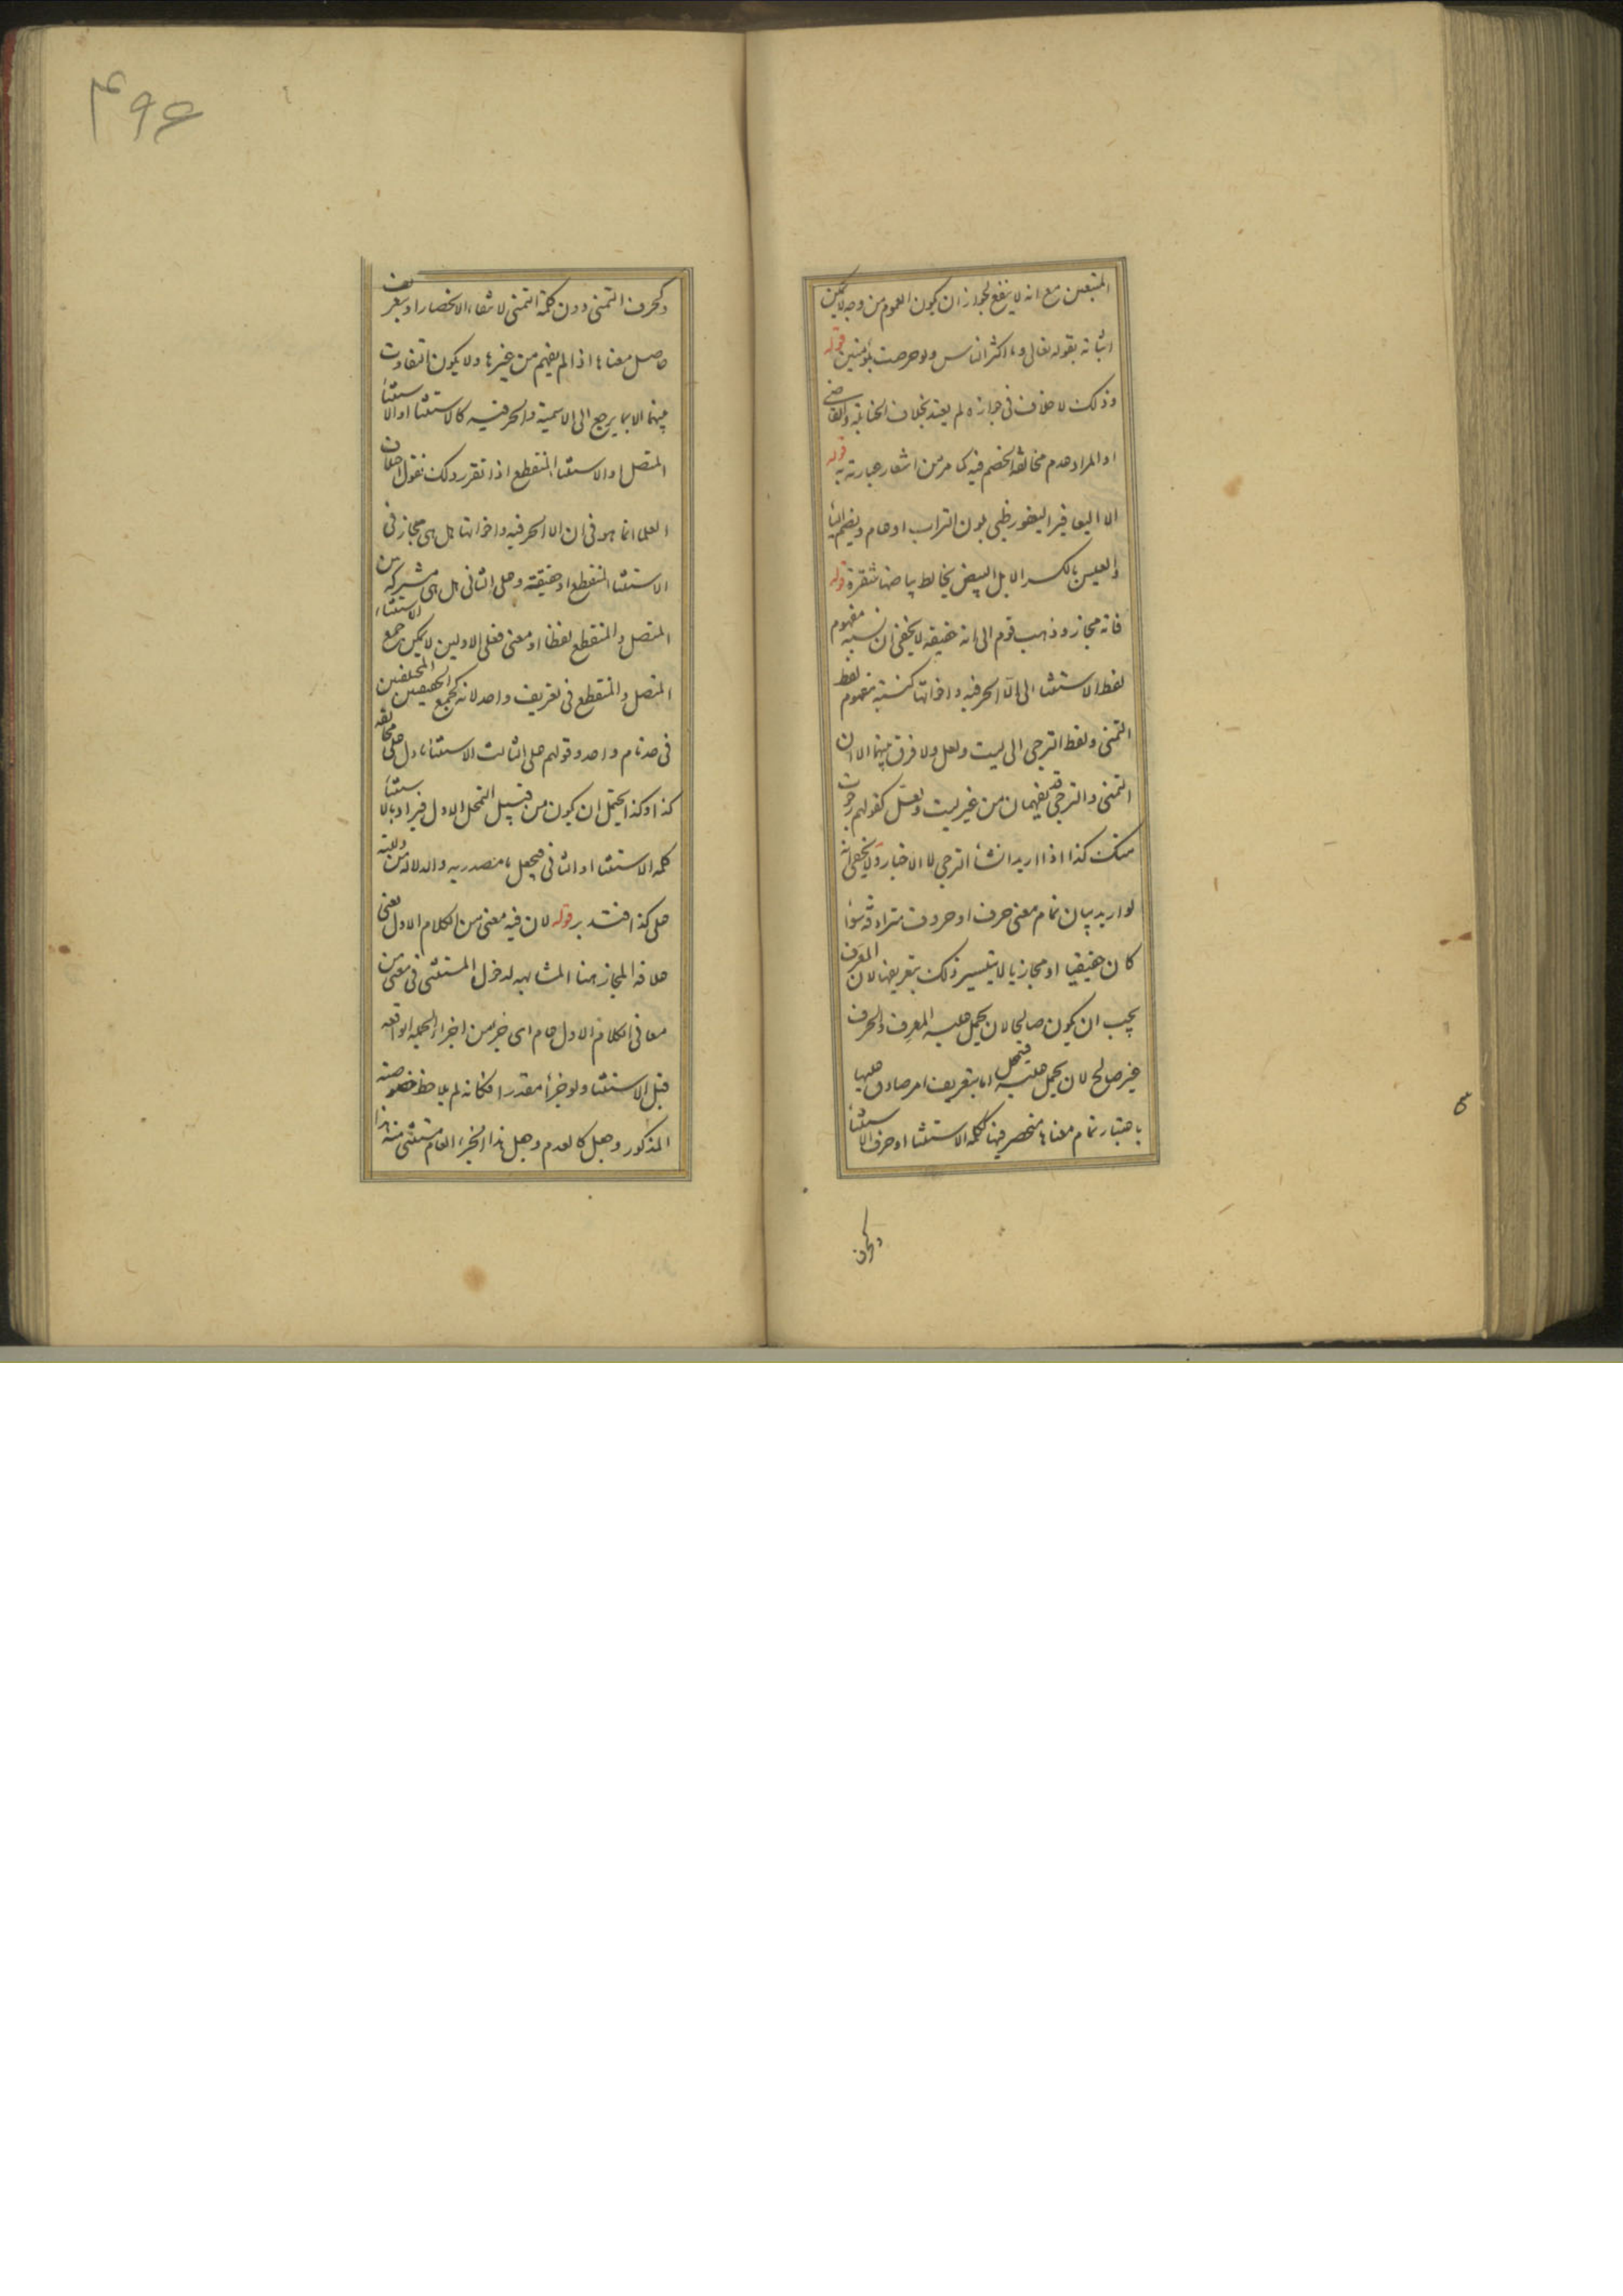 المتبعين مع انه لا ينفع لجواز ان يكون العموم من وجه لا يمكن
اثباته بقوله تعالى وما اكثر الناس ولو حرصت بمؤمنين قوله
وذلك لا خلاف في جوازه لم يعتد بخلاف الحنابلة والقاضي
او المراد عدم مخالفة الخصم فيه كما مر من اشعار عبارته به قوله
الا اليعافير اليعفور ظبي بلون التراب او عام ويضم الياء
والعيس بالكسر الابل البيض يخالط بياضها شقرة قوله
فانه مجاز وذهب قوم الى انه حقيقة لا يخفى ان نسبة مفهوم
لفظ الاستثناء الى الّا الحرفية واخواتها كنسبة مفهوم لفظ
التمني ولفظ الترجي الى ليت ولعل ولا فرق بينهما الا ان
التمني والترجي قد يفهمان من غير ليت ولعل كقولهم رجوت
منك كذا اذا اريد انشاء الترجي لا الاخبار ولا يخفى انه
لو اريد بيان تمام معنى حرف او حروف مترادفة سواء
كان حقيقيا او مجازيا لا يتيسر ذلك بتعريفها لان المعرف
يجب ان يكون صالحا لان يحمل عليه المعرف والحرف
غير صالح لان يحمل عليه فيحمل اما بتعريف امر صادق عليها
باعتبار تمام معناها منحصر فيها ككلمة الاستثناء او حرف الاستثناء
وكحرف
۴۹۶
وكحرف التمني دون كلمة التمني لانتفاء الانحصار او بتعريف
حاصل معناها اذا لم يفهم من غيرها ولا يكون التفاوت
بينهما الا بما يرجع الى الاسمية والحرفية كالاستثناء او الاستثناء
المتصل او الاستثناء المنقطع اذا تقرر ذلك نقول اختلاف
العلماء انما هو في ان الا الحرفية واخواتها هل هي مجاز في
الاستثناء المنقطع او حقيقة وعلى الثاني هل هي مشتركة بين الاستثناء
المتصل والمنقطع لفظا او معنى فعلى الاولين لا يمكن جمع
المتصل والمنقطع في تعريف واحد لانه كجمع الحقيقتين المختلفتين
في حد تام واحد وقولهم على الثالث الاستثناء ما دل على مخالفة
كذا وكذا يحتمل ان يكون من قبيل التمحل الاول فيراد بالاستثناء
كلمة الاستثناء او الثاني فيجعل ما مصدرية والدلالة من دلالته
على كذا فتدبر قوله لان فيه معنى من الكلام الاول يعني
علاقة المجاز هنا المشابهة لدخول المستثنى في معنى من
معاني الكلام الاول عام اي جزء من اجزاء الجملة الواقعة
قبل الاستثناء ولو جزءا مقدرا فكانه لم يلاحظ خصوصية
المذكور وجعل كالعدم وجعل هذا الجزء العام مستثنى منه هذا